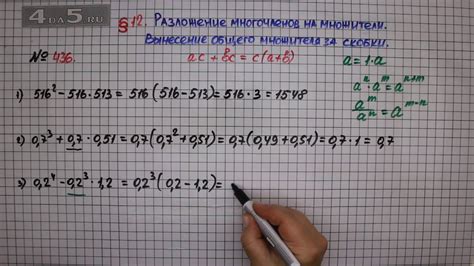 4DA5.RU
§12. Разложение многочленов на множители.
Вынесение общего множителя за скобки.
№ 436.
ac + bc = c(a+b)
a = 1·a
aⁿ·aᵐ = aⁿ⁺ᵐ
aᵐ/aⁿ = aᵐ⁻ⁿ
1) 516² - 516·513 = 516(516-513) = 516·3 = 1548
2) 0,7³ + 0,7·0,51 = 0,7(0,7²+0,51) = 0,7(0,49+0,51) = 0,7·1 = 0,7
3) 0,2⁴ - 0,2³·1,2 = 0,2³(0,2-1,2) =